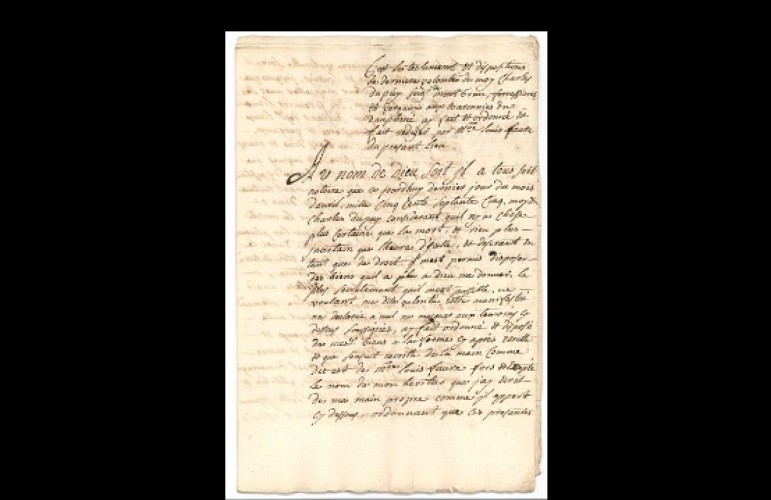 C'est le testament et dispositions
de derniere volonté du moy Charles
dupuy seigr montbrun, ferrassieres
et aux baronnies du
dauphiné ay fait et ordonné et
fait rediger par Mre louis faure
du present lieu
Au nom de Dieu soit Il a tous soit
notoire que ce jourdhuy dernier jour du mois
davril, mille cinq cents septante cinq, moy
Charles dupuy considerant quil ny a chose
plus certaine que la mort, et rien plus
incertain que lheure dicelle, et desirant en
tant que de droit mest permis disposer
des biens quil a pleu a dieu me donner, le
plus secretement quil mest possible, ne
voulant ma dite volonté estre manifestée
ne declarée a nul ne mesmes aux temoins cy
dessus soussignés, ay fait ordonné et disposé
de mes biens a la forme cy apres
et que senfuit escrite de la main comme
dit est de Mre louis faure fors
le nom de mon heritier que jay
de ma main propre comme il appert
cy dessous, ordonnant que ces presentes